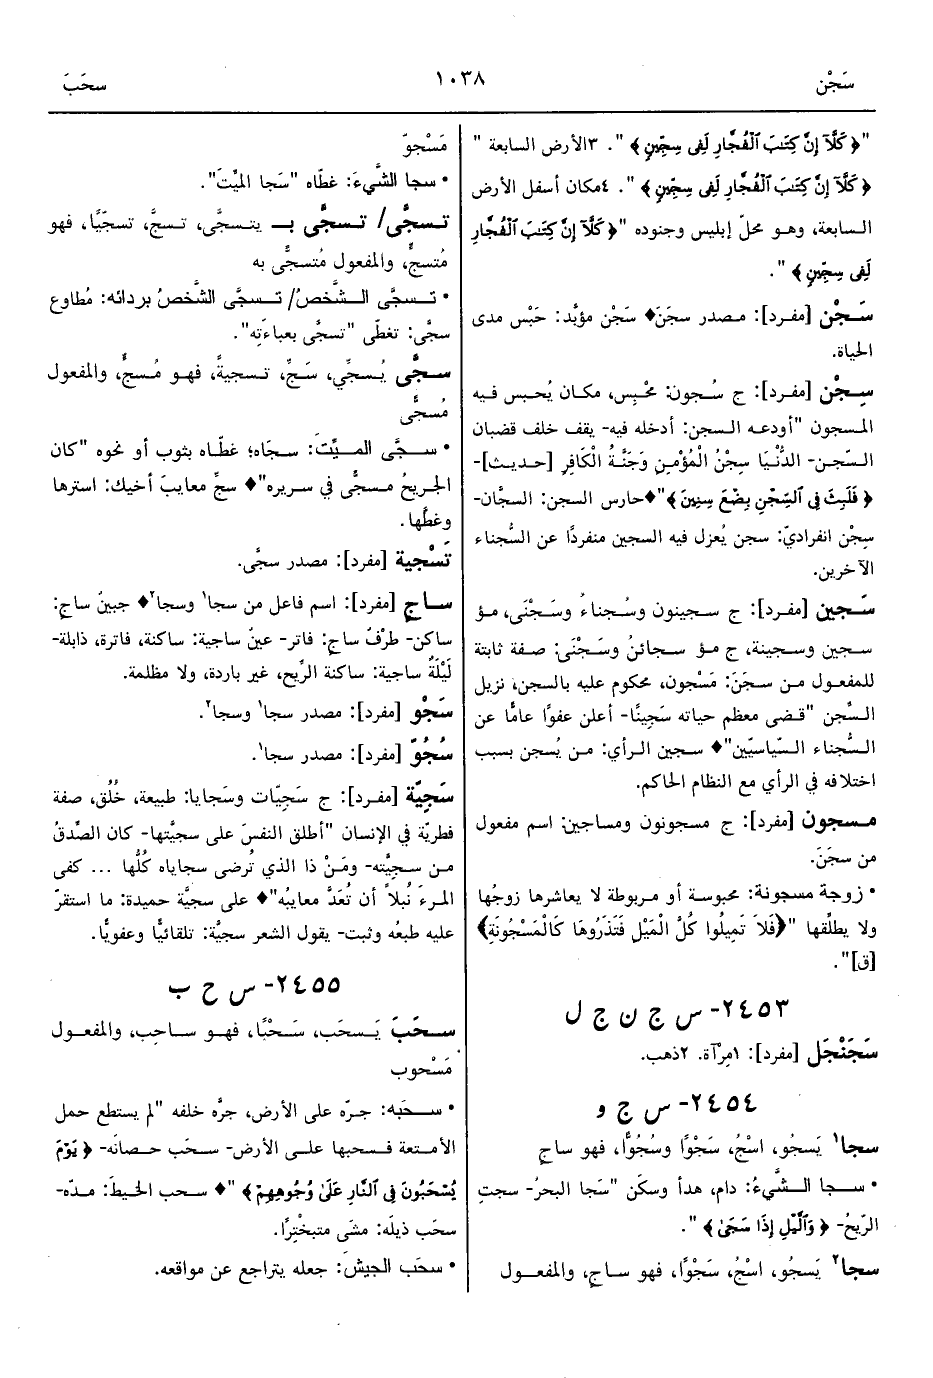 سَجْن
١٠٣٨
سحَبَ
"﴿ كَلَّآ إِنَّ كِتَٰبَ ٱلْفُجَّارِ لَفِى سِجِّينٍ ﴾ ". ٣الأرض السابعة "
﴿ كَلَّآ إِنَّ كِتَٰبَ ٱلْفُجَّارِ لَفِى سِجِّينٍ ﴾ ". ٤مكان أسفل الأرض
السابعة، وهو محلّ إبليس وجنوده "﴿ كَلَّآ إِنَّ كِتَٰبَ ٱلْفُجَّارِ
لَفِى سِجِّينٍ ﴾ ".
سَجْن [مفرد]: مصدر سجَنَ♦ سَجْن مؤبَّد: حَبْس مدى
الحياة.
سِجْن [مفرد]: ج سُجون: مَحْبِس، مكان يُحبس فيه
المسجون "أودعه السجن: أدخله فيه- يقف خلف قضبان
السّجن- الدُّنْيَا سِجْنُ الْمُؤْمِنِ وَجَنَّةُ الْكَافِرِ [حديث]-
﴿ فَلَبِثَ فِى ٱلسِّجْنِ بِضْعَ سِنِينَ ﴾"♦حارس السجن: السجَّان-
سِجْن انفراديّ: سجن يُعزل فيه السجين منفردًا عن السُّجناء
الآخرين.
سَجين [مفرد]: ج سجينون وسُجناءُ وسَجْنَى، مؤ
سجين وسجينة، ج مؤ سجائنُ وسَجْنَى: صفة ثابتة
للمفعول من سجَنَ: مَسْجون، محكوم عليه بالسجن، نزيل
السِّجن "قضى معظم حياته سَجِينًا- أعلن عفوًا عامًّا عن
السُّجناء السّياسيّين"♦ سجين الرأي: من يُسجن بسبب
اختلافه في الرأي مع النظام الحاكم.
مسجون [مفرد]: ج مسجونون ومساجين: اسم مفعول
من سجَنَ.
• زوجة مسجونة: محبوسة أو مربوطة لا يعاشرها زوجُها
ولا يطلِّقها "﴿فَلاَ تَمِيلُوا كُلَّ الْمَيْلِ فَتَذَرُوهَا كَالْمَسْجُونَةِ﴾
[ق]".
٢٤٥٣- س ج ن ج ل
سَجَنْجَل [مفرد]: ١مِرآة. ٢ذهب.
٢٤٥٤- س ج و
سجا١ يَسجُو، اسْجُ، سَجْوًا وسُجُوًّا، فهو ساجٍ
• سجا الشَّيءُ: دام، هدأ وسكَن "سَجا البحرُ- سجتِ
الرّيحُ- ﴿ وَٱلَّيْلِ إِذَا سَجَىٰ ﴾ ".
سجا٢ يَسجُو، اسْجُ، سَجْوًا، فهو ساجٍ، والمفعول
مَسْجوّ
• سجا الشَّيءَ: غطّاه "سَجا الميِّتَ".
تسجَّى/ تسجَّى بـ يتسجَّى، تسجَّ، تسجّيًا، فهو
مُتسجٍّ، والمفعول مُتسجًّى به
• تسجَّى الشَّخصُ/ تسجَّى الشَّخصُ بردائه: مُطاوع
سجَّى: تغطَّى "تسجَّى بعباءَتِه".
سجَّى يُسجِّي، سَجِّ، تسجيةً، فهو مُسجٍّ، والمفعول
مُسجًّى
• سجَّى الميِّتَ: سجَاه؛ غطَّاه بثوب أو نحوه "كان
الجريحُ مسجًّى في سريره"♦ سجِّ معايبَ أخيك: استرها
وغطِّها.
تَسْجية [مفرد]: مصدر سجَّى.
ساجٍ [مفرد]: اسم فاعل من سجا١ وسجا٢♦ جبينٌ ساجٍ:
ساكن- طرْفٌ ساجٍ: فاتر- عينٌ ساجية: ساكنة، فاترة، ذابلة-
لَيْلَةٌ ساجية: ساكنة الرِّيح، غير باردة، ولا مظلمة.
سَجْو [مفرد]: مصدر سجا١ وسجا٢.
سُجُوّ [مفرد]: مصدر سجا١.
سَجيَّة [مفرد]: ج سَجِيّات وسَجايا: طبيعة، خُلُق، صفة
فطريّة في الإنسان "أطلق النفسَ على سجيَّتها- كان الصِّدقُ
من سجيَّته- ومَنْ ذا الذي تُرضى سجاياه كُلُّها ... كفى
المرءَ نُبلاً أن تُعَدَّ معايبُه"♦ على سجيَّة حميدة: ما استقرّ
عليه طبعُه وثبت- يقول الشعر سجيَّة: تلقائيًّا وعفويًّا.
٢٤٥٥- س ح ب
سحَبَ يَسحَب، سَحْبًا، فهو ساحِب، والمفعول
مَسْحوب
• سحَبه: جرّه على الأرض، جرَّه خلفه "لم يستطع حمل
الأمتعة فسحبها على الأرض- سحَب حصانَه- ﴿ يَوْمَ
يُسْحَبُونَ فِى ٱلنَّارِ عَلَىٰ وُجُوهِهِمْ ﴾ "♦ سحب الخيطَ: مدّه-
سحَب ذيلَه: مشَى متبخْتِرًا.
• سحَب الجيشَ: جعله يتراجع عن مواقعه.